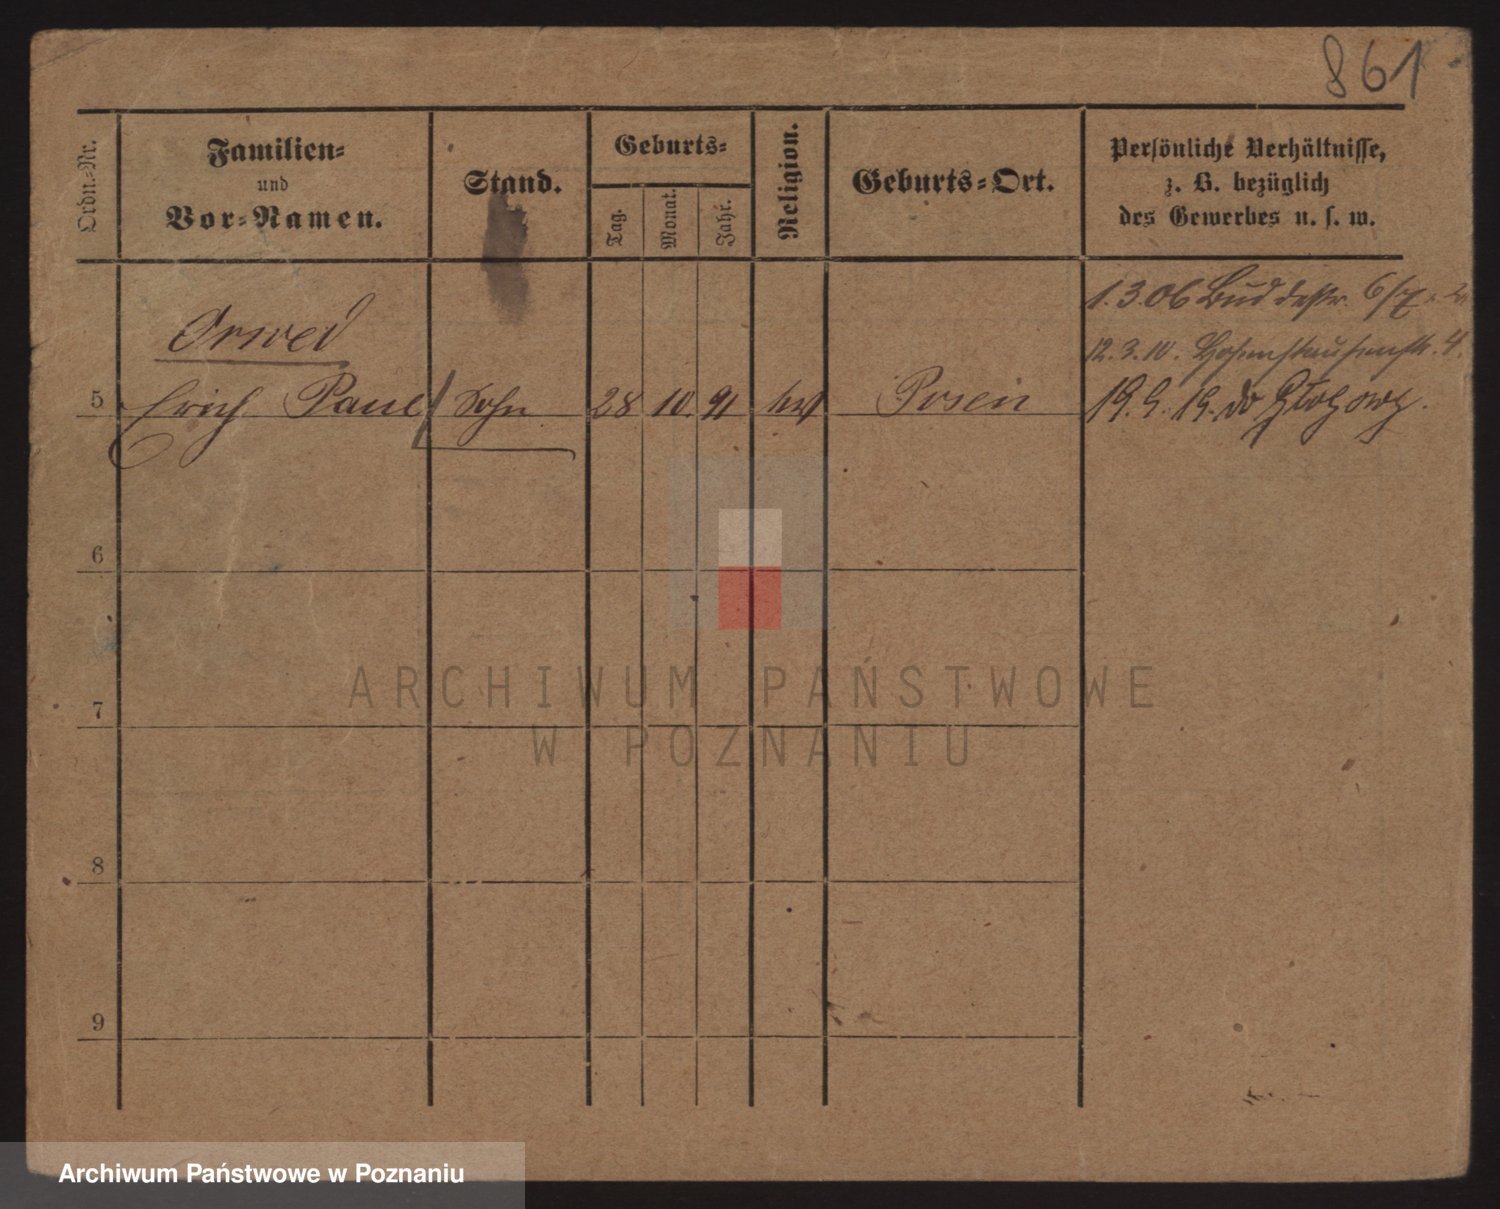 861
Ordn.-Nr.
Familien-
und
Vor-Namen.
Stand.
Geburts-
Tag.
Monat.
Jahr.
Religion.
Geburts-Ort.
Persönliche Verhältnisse,
z. B. bezüglich
des Gewerbes u. s. w.
1.3.06 6/7
Orwed
12.3.10. Hohenstaufenstr. 4.
5 Erich Paul Sohn 28 10 91 Posen 19. 9. 19.
6
7
8
9
ARCHIWUM PAŃSTWOWE
W POZNANIU
Archiwum Państwowe w Poznaniu